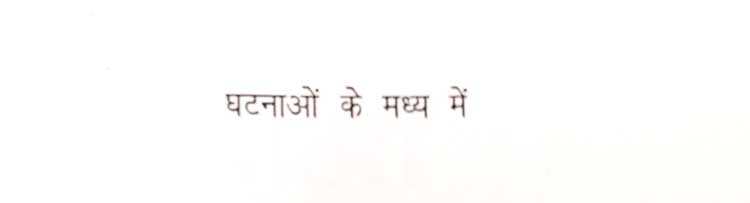 घटनाओं के मध्य में